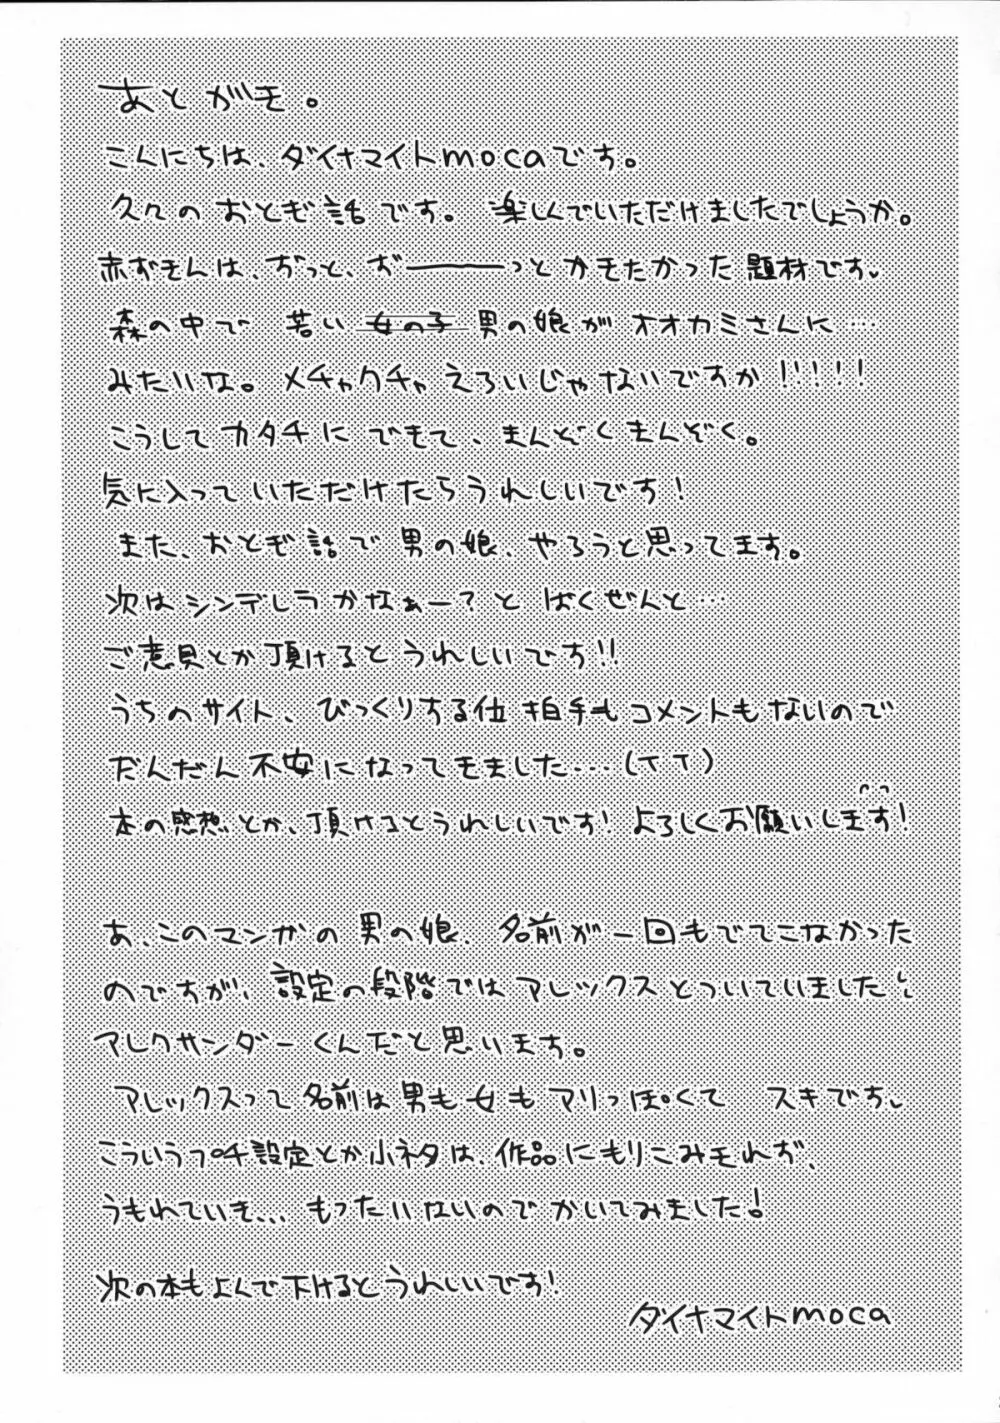 あとがき。
こんにちは、ダイナマイトmocaです。
久々のおとぎ話です。楽しんでいただけましたでしょうか。
赤ずきんは、ずっと、ず―――っとかきたかった題材です。
森の中で 若い 女の子 男の娘が オオカミさんに…
みたいな。メチャクチャえろいじゃないですか!!!!!
こうしてカタチにできて、まんぞくまんぞく。
気に入っていただけたらうれしいです!
また、おとぎ話で男の娘、やろうと思ってます。
次はシンデレラかなぁー?と ばくぜんと…
ご意見とか頂けるとうれしいです!!
うちのサイト、びっくりする位拍手もコメントもないので
だんだん不安になってきました…(T T)
本の感想とか、頂けるとうれしいです!よろしくお願いします!
あ、このマンガの男の娘、名前が一回もでてこなかった
のですが、設定の段階ではアレックスとついていました
アレクサンダーくんだと思います。
アレックスって名前は男も女もアリっぽくて スキです。
こういうプチ設定とか小ネタは、作品にもりこみきれず、
うもれていき... もったいないのでかいてみました!
次の本もよんで下けるとうれしいです!
ダイナマイトmoca